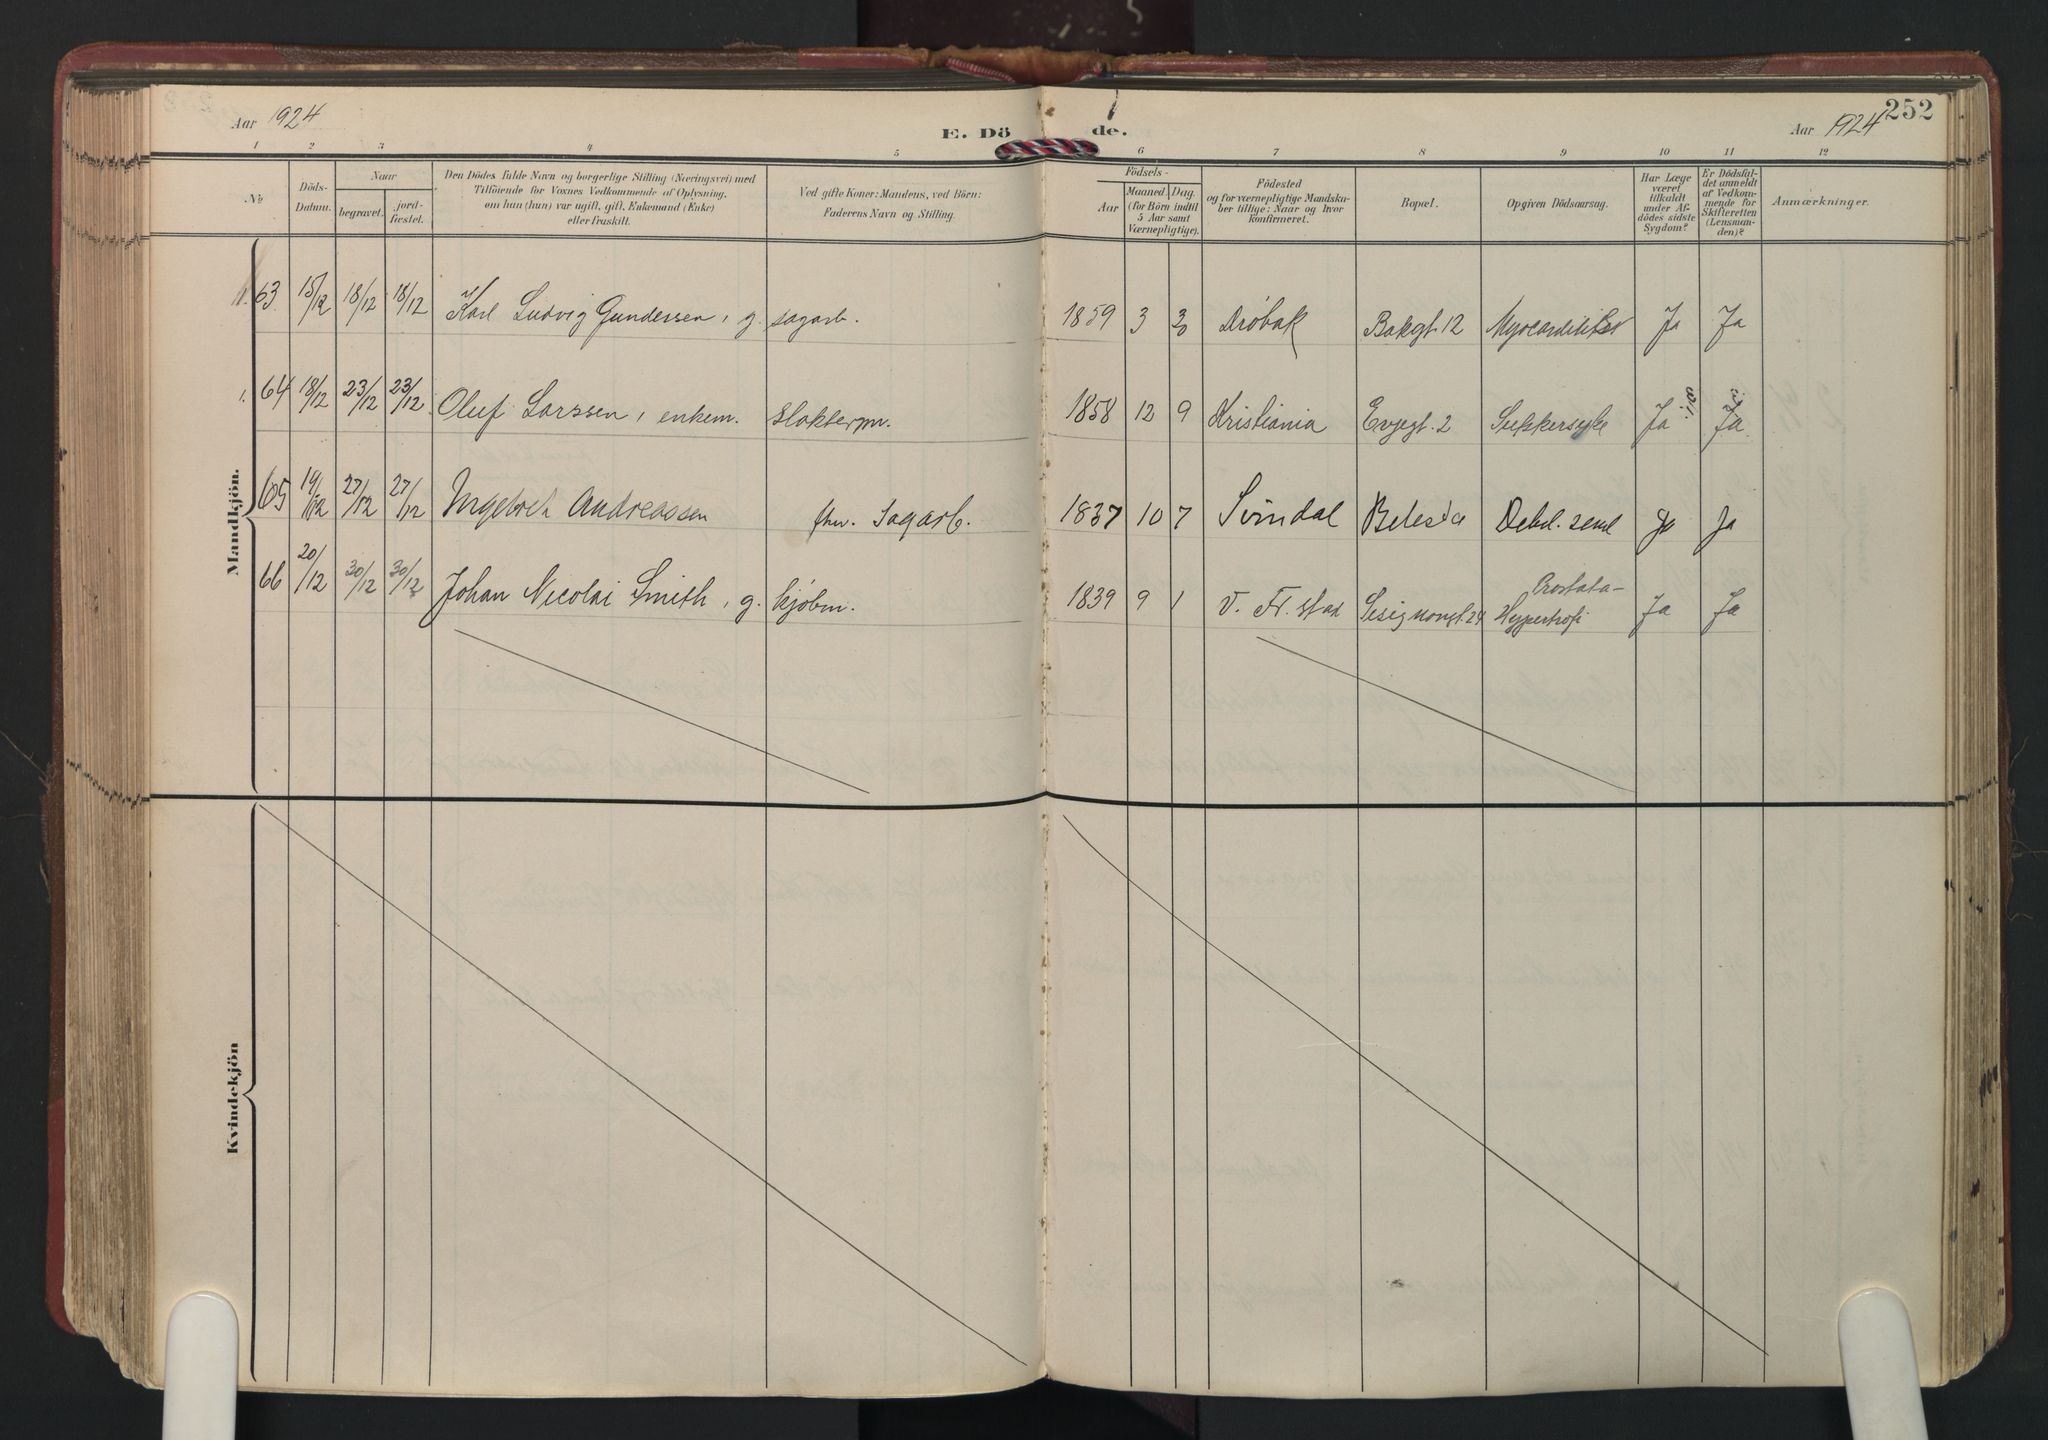 252
Aar 1924
E. Dö de.
Aar 1924
1 2 3 4 5 6 7 8 9 10 11 12
No
Döds-
Datum.
Naar
begravet.
jord-
fæstet.
Den Dödes fulde Navn og borgerlige Stilling (Næringsvei) med
Tilföiende for Voxnes Vedkommende af Oplysning,
om han (hun) var ugift, gift, Enkemand (Enke)
eller fraskilt.
Ved gifte Koner: Mandens, ved Börn:
Faderens Navn og Stilling.
Födsels-
Aar
Maaned. Dag.
(for Börn indtil
5 Aar samt
Værnepligtige).
Födested
og for værnepligtige Mandska-
ber tillige: Naar og hvor
konfirmeret.
Bopæl.
Opgiven Dödsaarsag.
Har Læge
været
tilkaldt
under Af-
dödes sidste
Sygdom?
Er Dödsfal-
det anmeldt
af Vedkom-
mende for
Skifteretten
(Lensman-
den)?
Anmærkninger.
Mandkjön.
63 15/12 18/12 18/12 Karl Ludvig Gundersen, g. sagarb. 1859 3 30 Drøbak Bakgt. 12 Myocarditis Ja Ja
64 18/12 23/12 23/12 Oluf Larssen, enkem. slakterm. 1858 12 9 Kristiania Evjegt. 2 Sukkersyke Ja Ja
65 19/12 27/12 27/12 Ingebret Andreassen fhv. Sagarb. 1837 10 7 Sirndal Betesda Debil. senil Ja Ja
66 20/12 30/12 30/12 Johan Nicolai Smith, g. kjøbm. 1839 9 1 V. Fr. stad 24 Prostata-
Hypertrofi Ja Ja
Kvindekjön